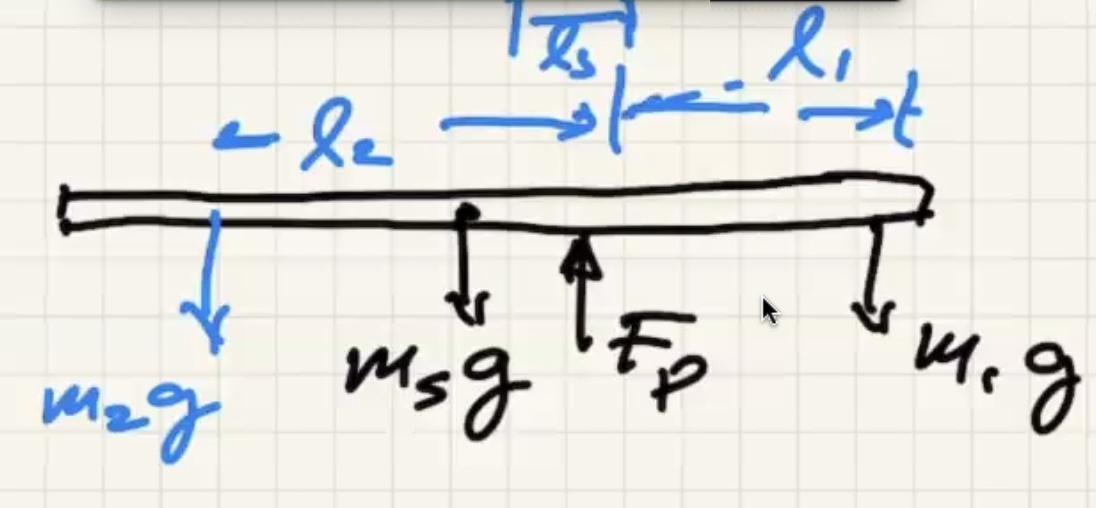 ls
l₁
l₂
m₂g
msg
Fp
m₁g